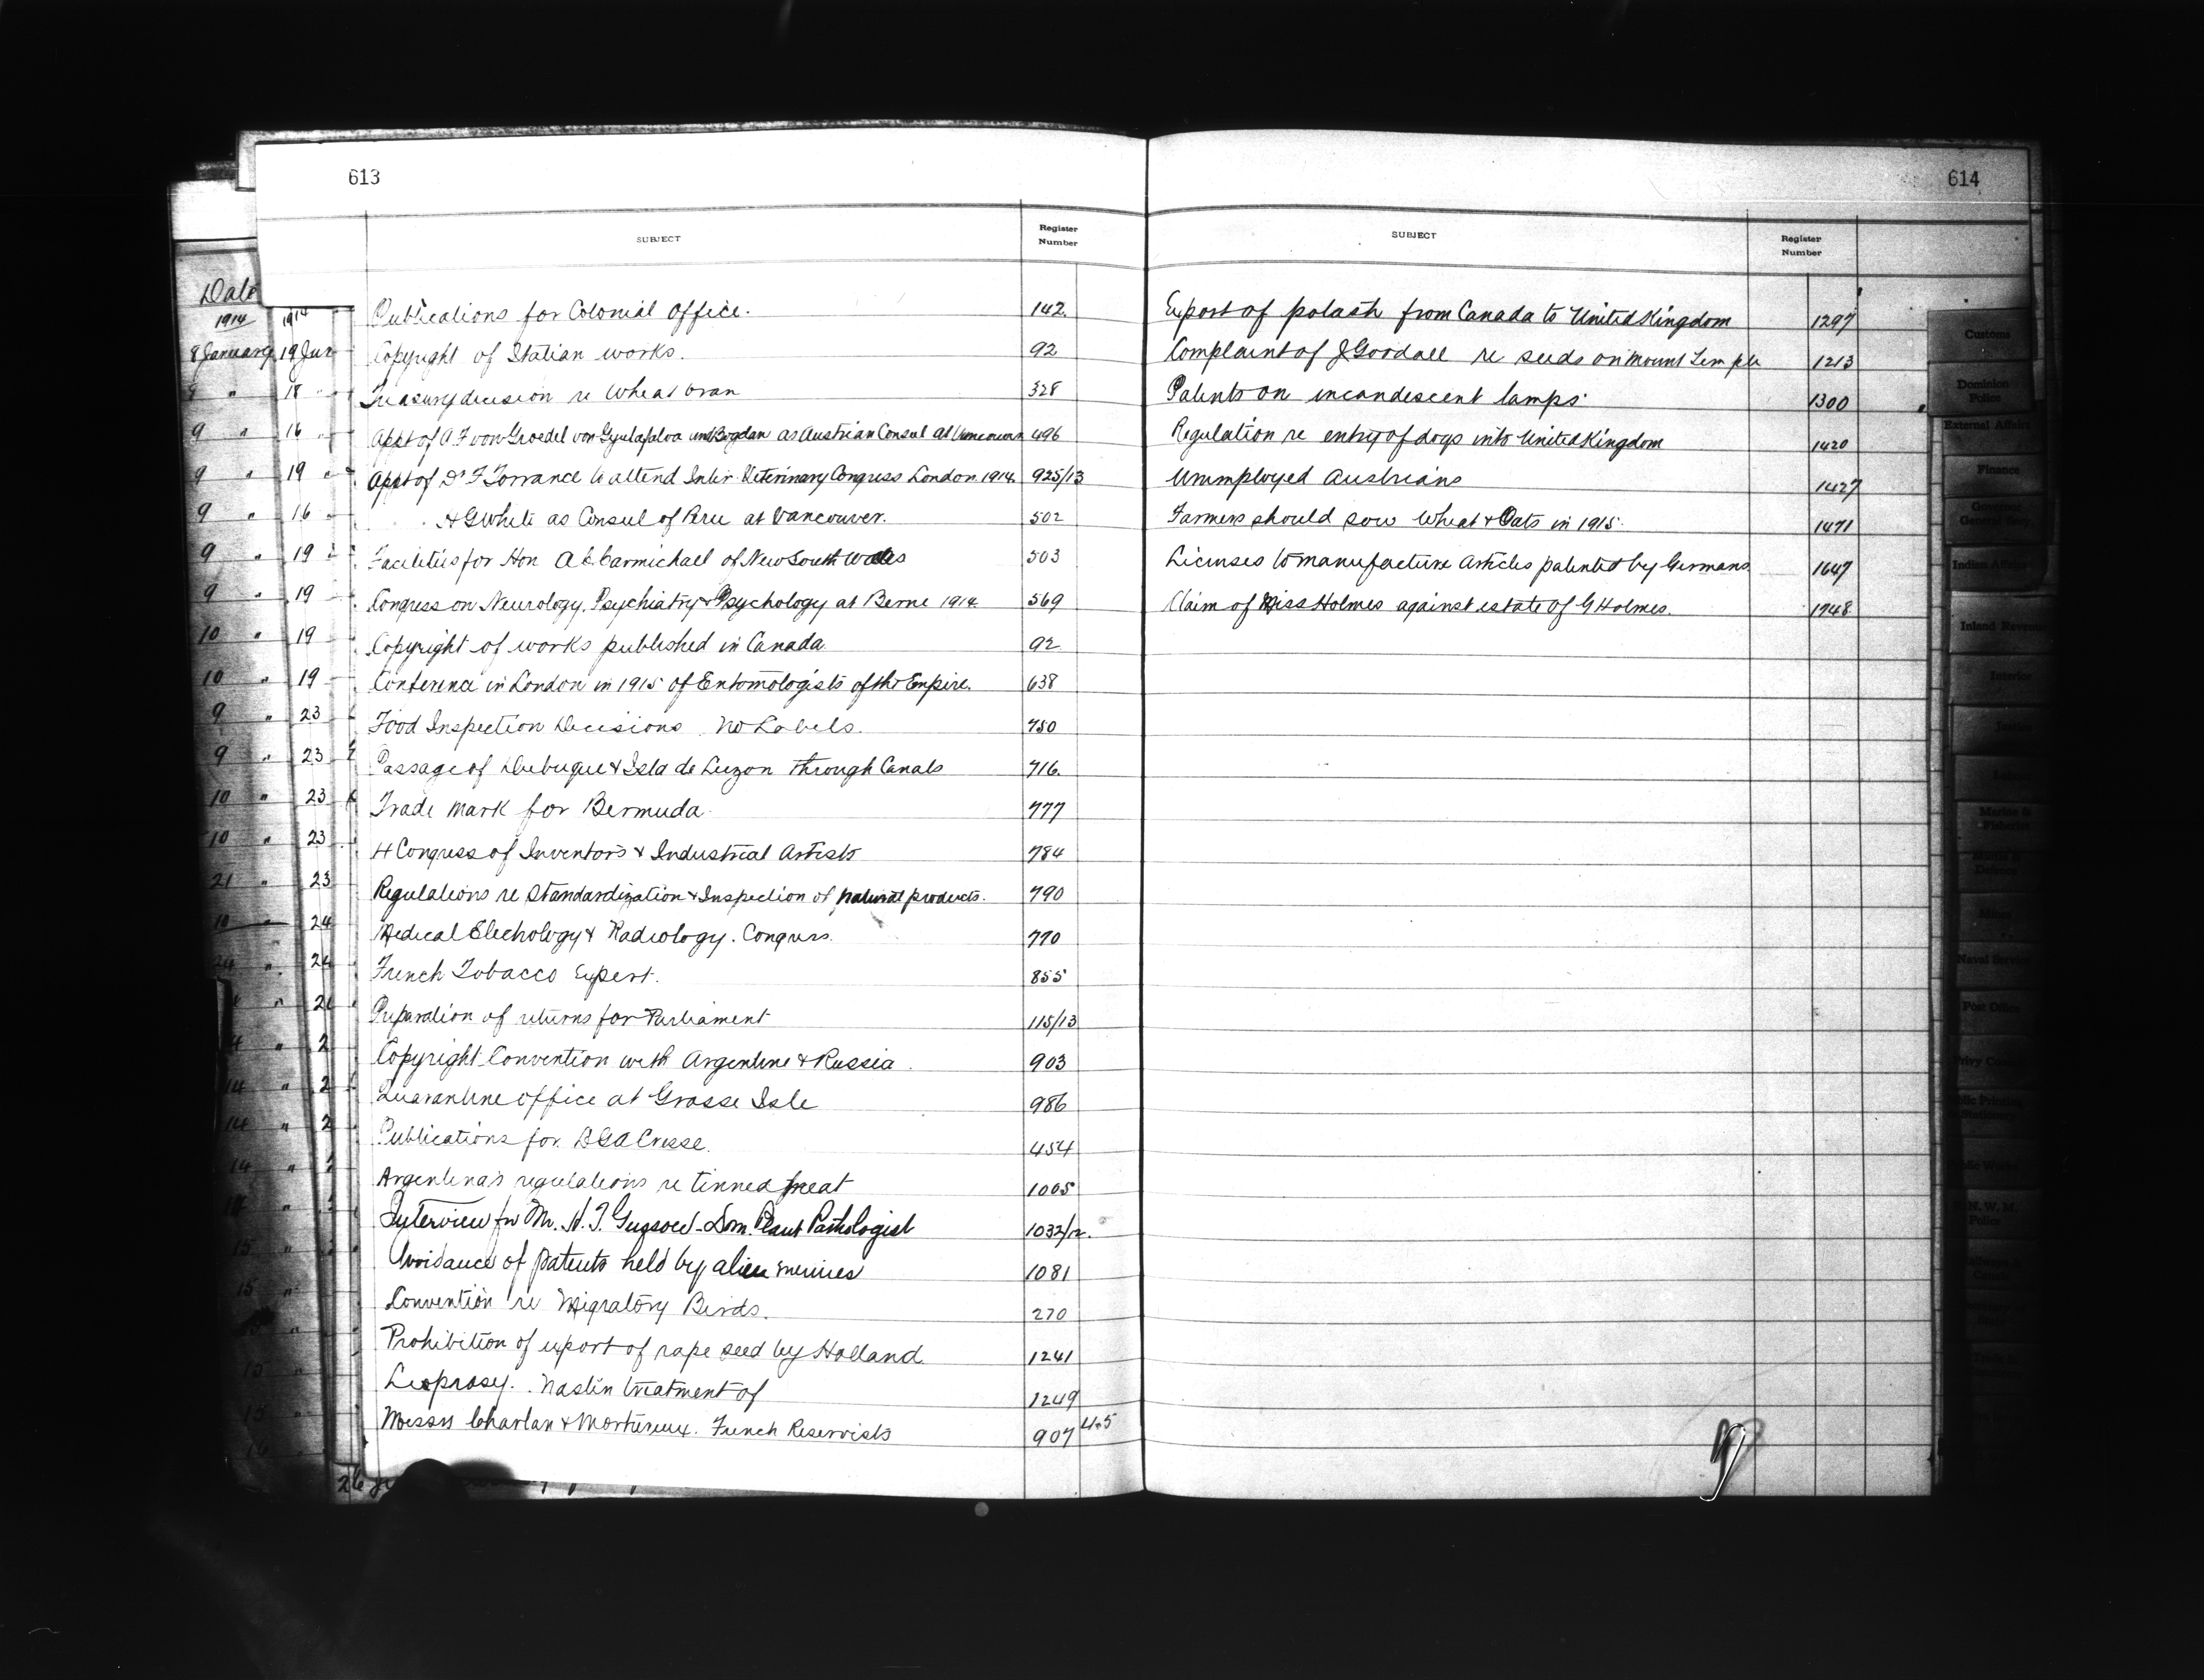 613
SUBJECT
Register
Number
Date
1914 1914
8 January 19 Jan Publications for Colonial Office. 142.
Copyright of Italian works. 92
18 Treasury decision re Wheat bran 328
9 " 16 Appt of A F von Groedel von Gyulafalva und Bogdan as Austrian Consul at Vancouver 496
9 " 19 Appt of Dr F Torrance to attend Inter. Veterinary Congress London 1914. 925/13
9 " 16 " A G White as Consul of Peru at Vancouver. 502
9 " 19 Facilities for Hon A C Carmichael of New South Wales 503
9 " 19 Congress on Neurology, Psychiatry & Psychology at Berne 1914 569
10 " 19 Copyright of works published in Canada. 92
10 " 19 Conference in London in 1915 of Entomologists of the Empire. 638
9 " 23 Food Inspection Decisions. No Labels. 750
9 " 23 Passage of Dubuque & Isla de Luzon through Canals 716.
10 " 23 Trade Mark for Bermuda. 777
10 " 23 4 Congress of Inventors & Industrial Artists 784
21 " 23 Regulations re Standardization & Inspection of natural products. 790
10 " 24 Medical Electrology & Radiology. Congress. 770
24 " 24 French Tobacco Expert. 855
Preparation of returns for Parliament 115/13
Copyright Convention with Argentine & Russia. 903
14 " Quarantine office at Grosse Isle 986
14 " Publications for D G A Cresse. 454
14 " Argentina's regulations re tinned meat 1005
Interview for Mr. H. T. Gussow - Dom. Plant Pathologist 1032/12.
15 " Avoidance of patents held by alien enemies 1081
15 " Convention re Migratory Birds. 270
Prohibition of export of rape seed by Holland. 1241
15 " Leoprosy. Nastin treatment of 1249
15 " Messrs Charlan & Mortureux. French Reservists 907
26
614
SUBJECT
Register
Number
Export of potash from Canada to United Kingdom 1297
Complaint of J Goodall re seeds on Mount Temple 1213
Patents on incandescent lamps. 1300
Regulation re entry of dogs into United Kingdom 1420
Unemployed Austrians 1427
Farmers should sow Wheat & Oats in 1915. 1471
Licenses to manufacture Articles patented by Germans 1647
Claim of Miss Holmes against estate of G Holmes. 1748
Customs
Dominion
Police
External Affairs
Finance
Governor
General Sec
Indian Affairs
Inland Revenue
Interior
Justice
Labour
Marine &
Fisheries
Militia &
Defence
Mines
Naval Service
Post Office
Privy Council
Public Printing
Stationery
Public Works
R. N. W. M.
Police
Railways &
Canals